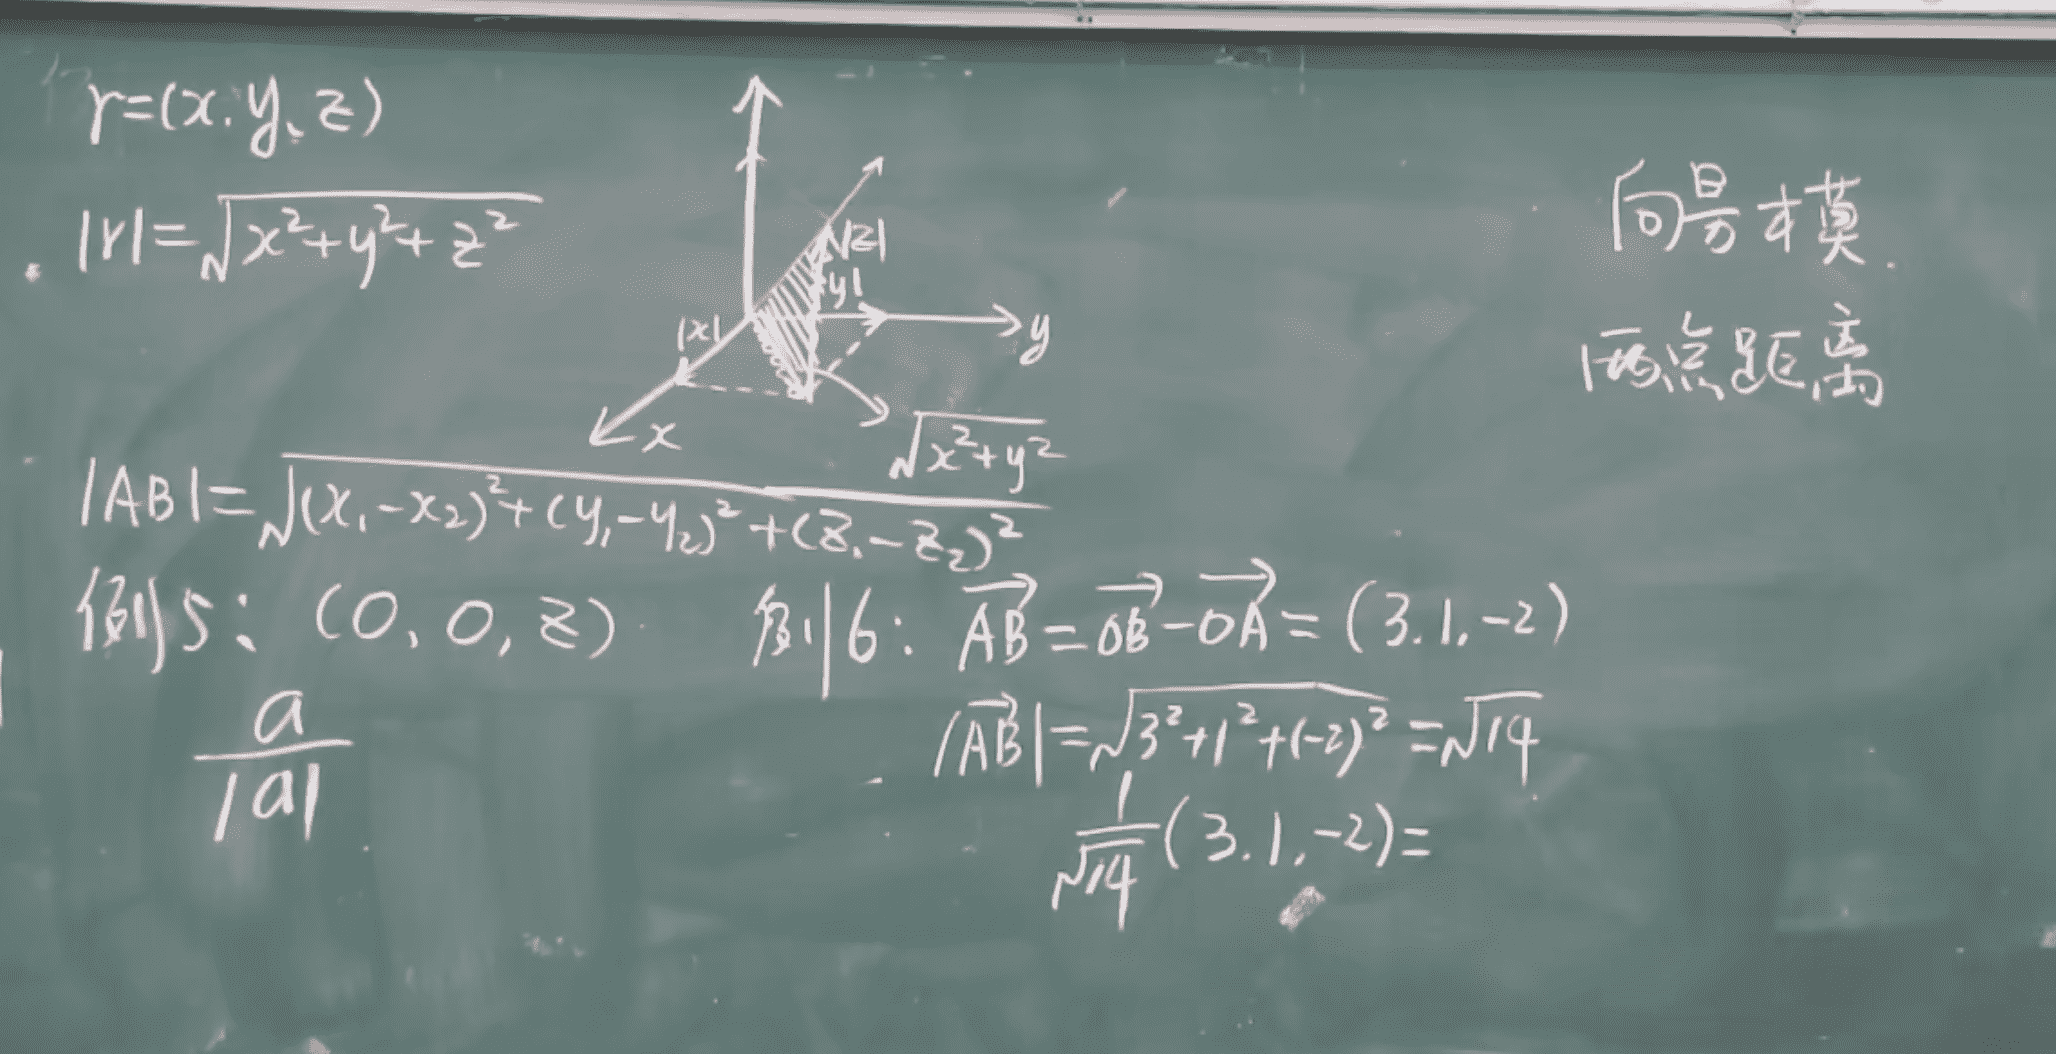 r=(x,y,z)
|r|=√(x²+y²+z²)
|z|
|y|
|x|
y
x
√(x²+y²)
向量模
两点距离
|AB|=√((x₁-x₂)²+(y₁-y₂)²+(z₁-z₂)²)
例5: (0,0,z)
a/|a|
例6: →AB=→OB-→OA=(3.1,-2)
|→AB|=√(3²+1²+(-2)²)=√14
1/√14(3.1,-2)=